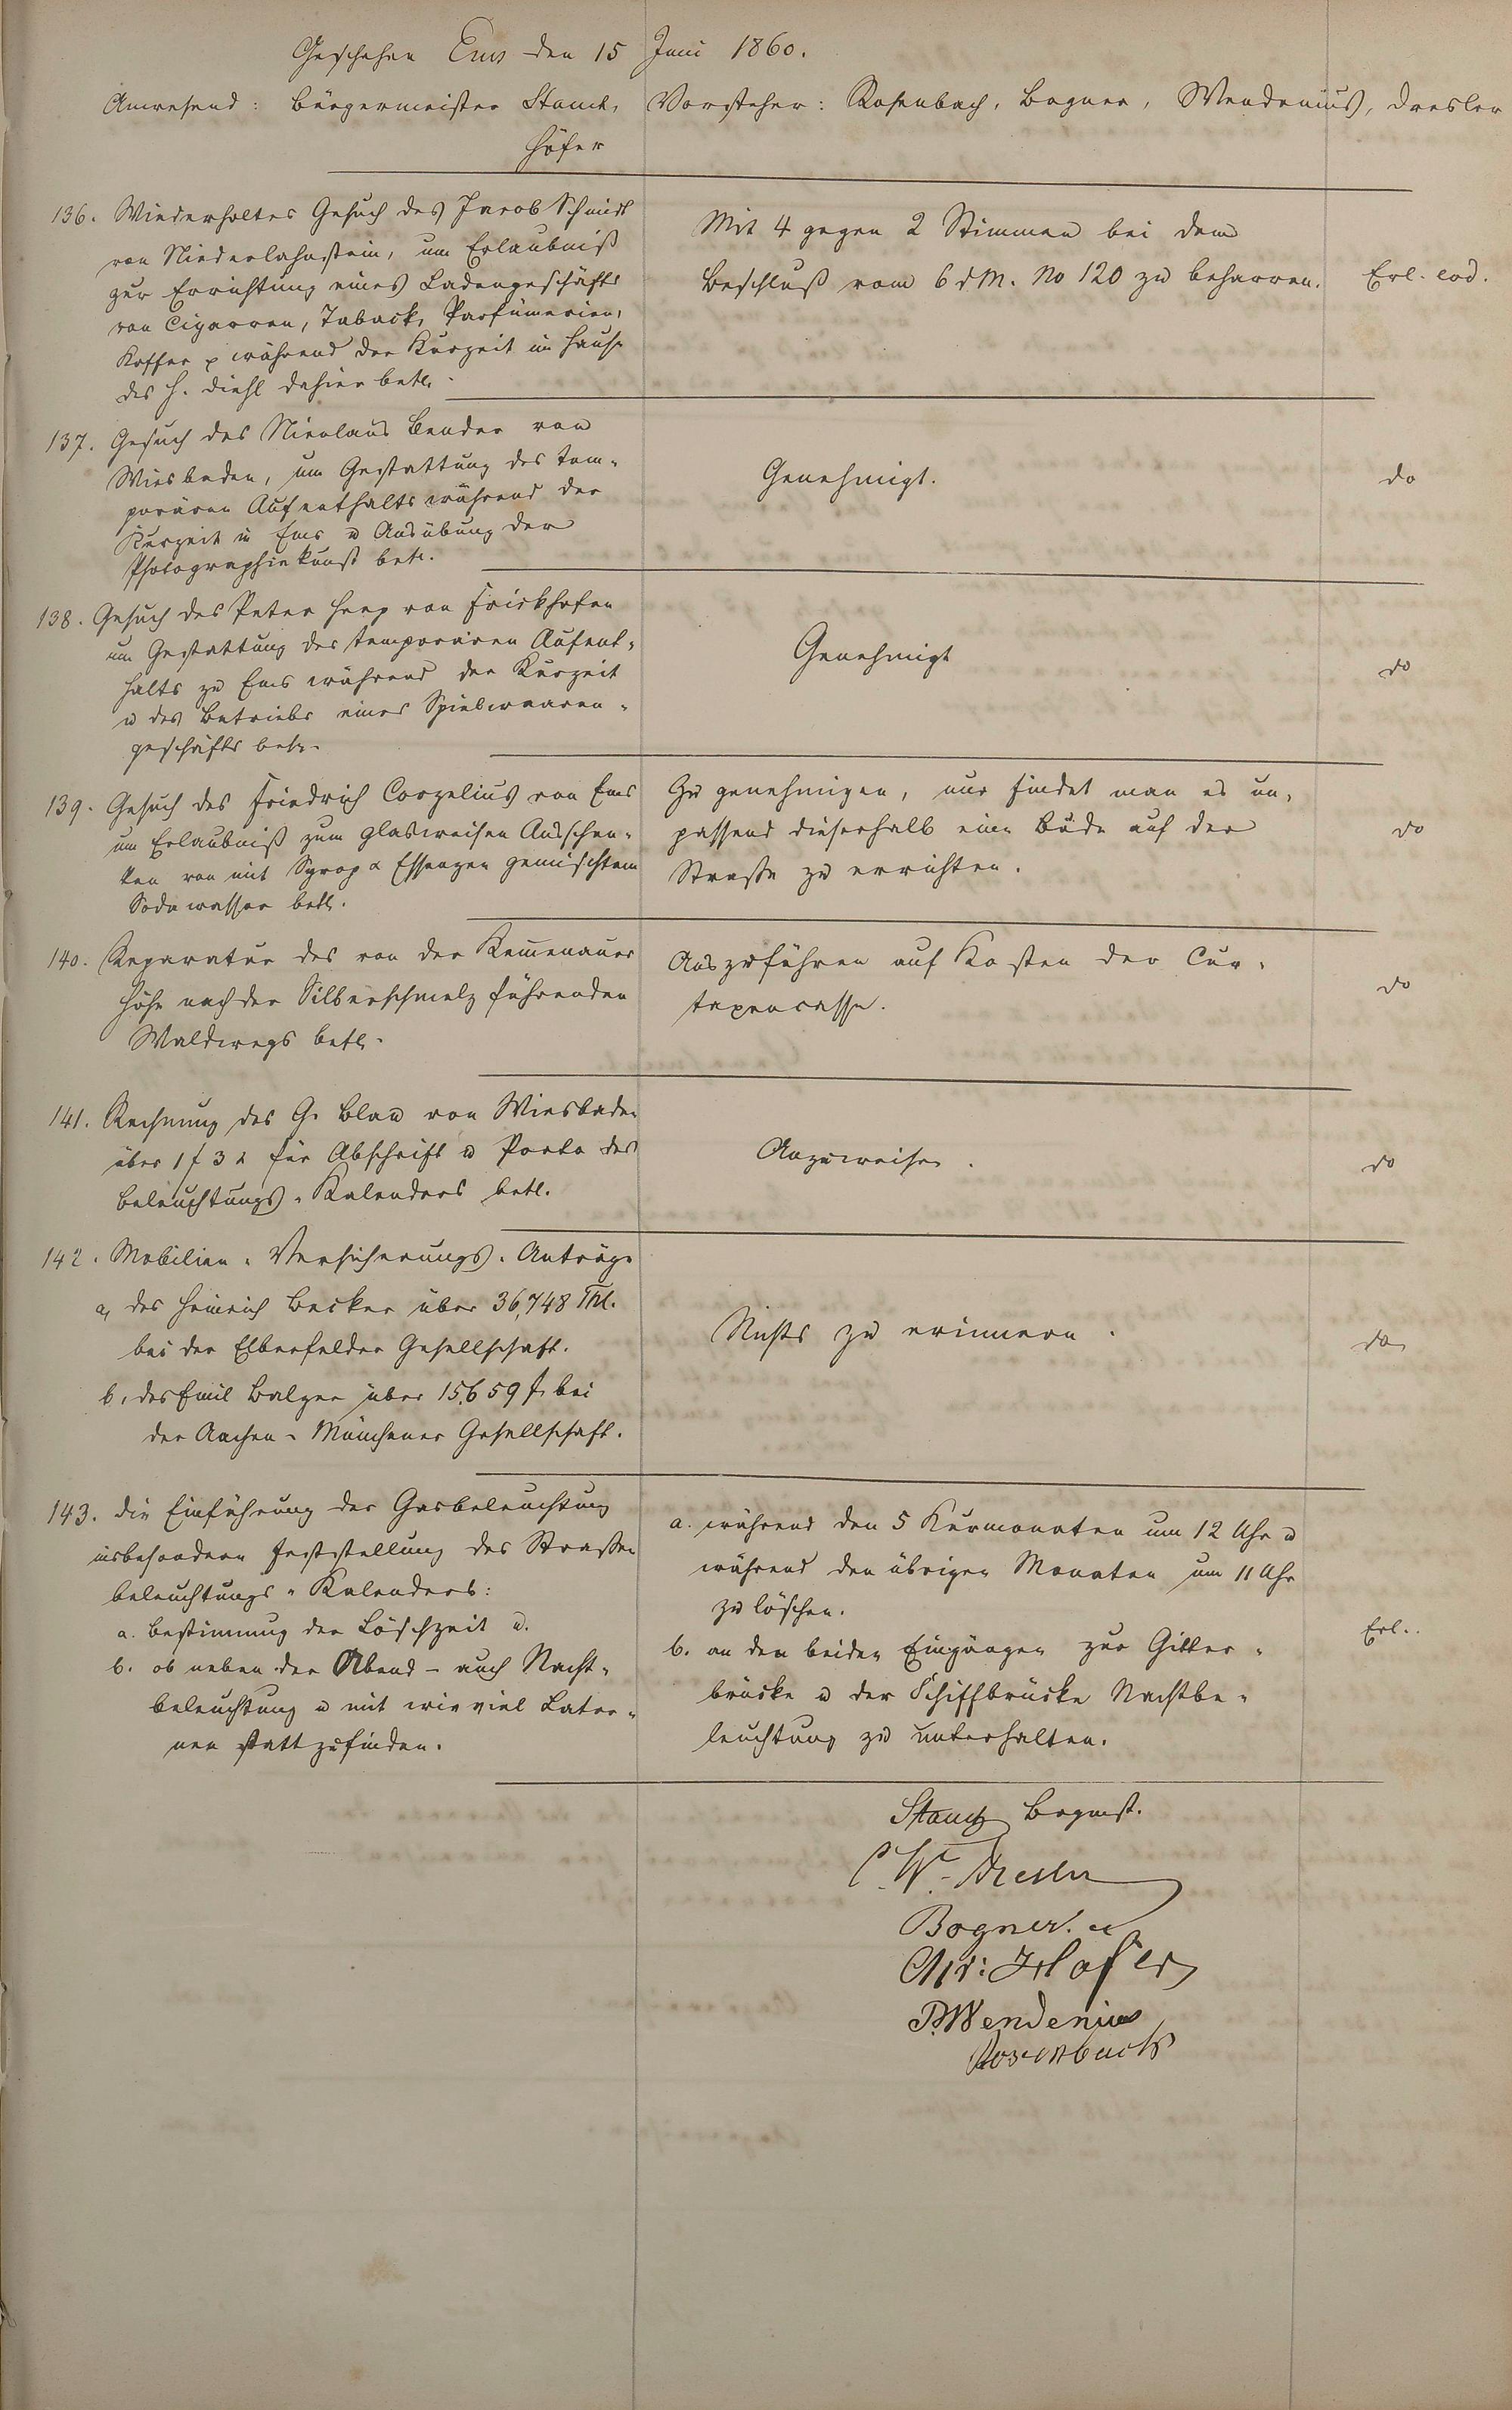 Geschehen Ems den 15 Juni 1860.
Anwesend: Bürgermeister Stamt, Vorsteher: Rosenbach, Bogner, Wendenius, Dresler
Höfer
136. Wiederholtes Gesuch des Jacob Schmidt
von Niederlahnstein, um Erlaubniß
zur Errichtung eines Ladengeschäfts
von Cigarren, Taback, Parfümerien,
Koffer p während der Kurzeit im Hause
des H. Diehl dahier betr.
Mit 4 gegen 2 Stimmen bei dem
Beschluß vom 6 d M. No 120 zu beharren.
Erl. eod.
137. Gesuch des Nicolaus Bender von
Wiesbaden, um Gestattung des tem-
porären Aufenthalts während der
Kurzeit in Ems u Ausübung der
Photographiekunst betr.
Genehmigt.
do
138. Gesuch des Peter Heep von Frickhofen
um Gestattung des temporären Aufent-
halts zu Ems während der Kurzeit
u des Betriebs eines Spielwaaren-
geschäfts betr.
Genehmigt
do
139. Gesuch des Friedrich Corzelius von Ems
um Erlaubniß zum glasweisen Ausschen-
ken von mit Syrop & Essenzen gemischtem
Sodawasser betr.
Zu genehmigen, nur findet man es un-
passend dieserhalb eine Bude auf der
Straße zu errichten.
do
140. Reparatur des von der Kemenauer
Höhe nach der Silberschmelz führenden
Waldwegs betr.
Auszuführen auf Kosten der Cur-
taxencasse.
do
141. Rechnung des G. Blau von Wiesbaden
über 1 f 3 x für Abschrift u Porto des
Beleuchtungs-Kalenders betr.
Anzuweisen.
do
142. Mobilien-Versicherungs-Anträge
a, des Heinrich Becker über 36,748 Thl.
bei der Elberfelder Gesellschaft.
b, des Emil Balzer über 15,659 f. bei
der Aachen-Münchener Gesellschaft.
Nichts zu erinnern.
do
143. Die Einführung der Gasbeleuchtung
insbesondere Feststellung des Straßen
beleuchtungs-Kalenders:
a. Bestimmung der Löschzeit u.
b. ob neben der Abend- auch Nacht-
beleuchtung u mit wie viel Later-
nen stattzufinden.
a. während den 5 Kurmonaten um 12 Uhr u
während den übrigen Monaten um 11 Uhr
zu löschen.
b. an den beiden Eingängen zur Gitter-
brücke u der Schiffbrücke Nachtbe-
leuchtung zu unterhalten.
Erl.
Bgmst.
C. W. Dresler
Bogner.
Chr: Höfer
P. Wendenius
Rosenbach